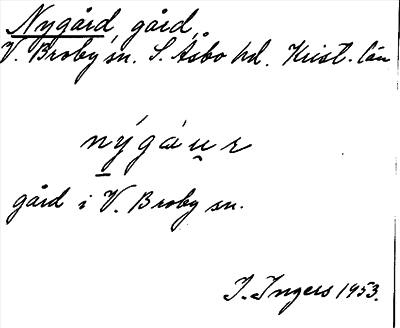 Nygård, gård,
V. Broby sn. S. Åsbo hd. Krist. län
nýgáu̯r
gård i V. Broby sn.
I. Ingers 1953.